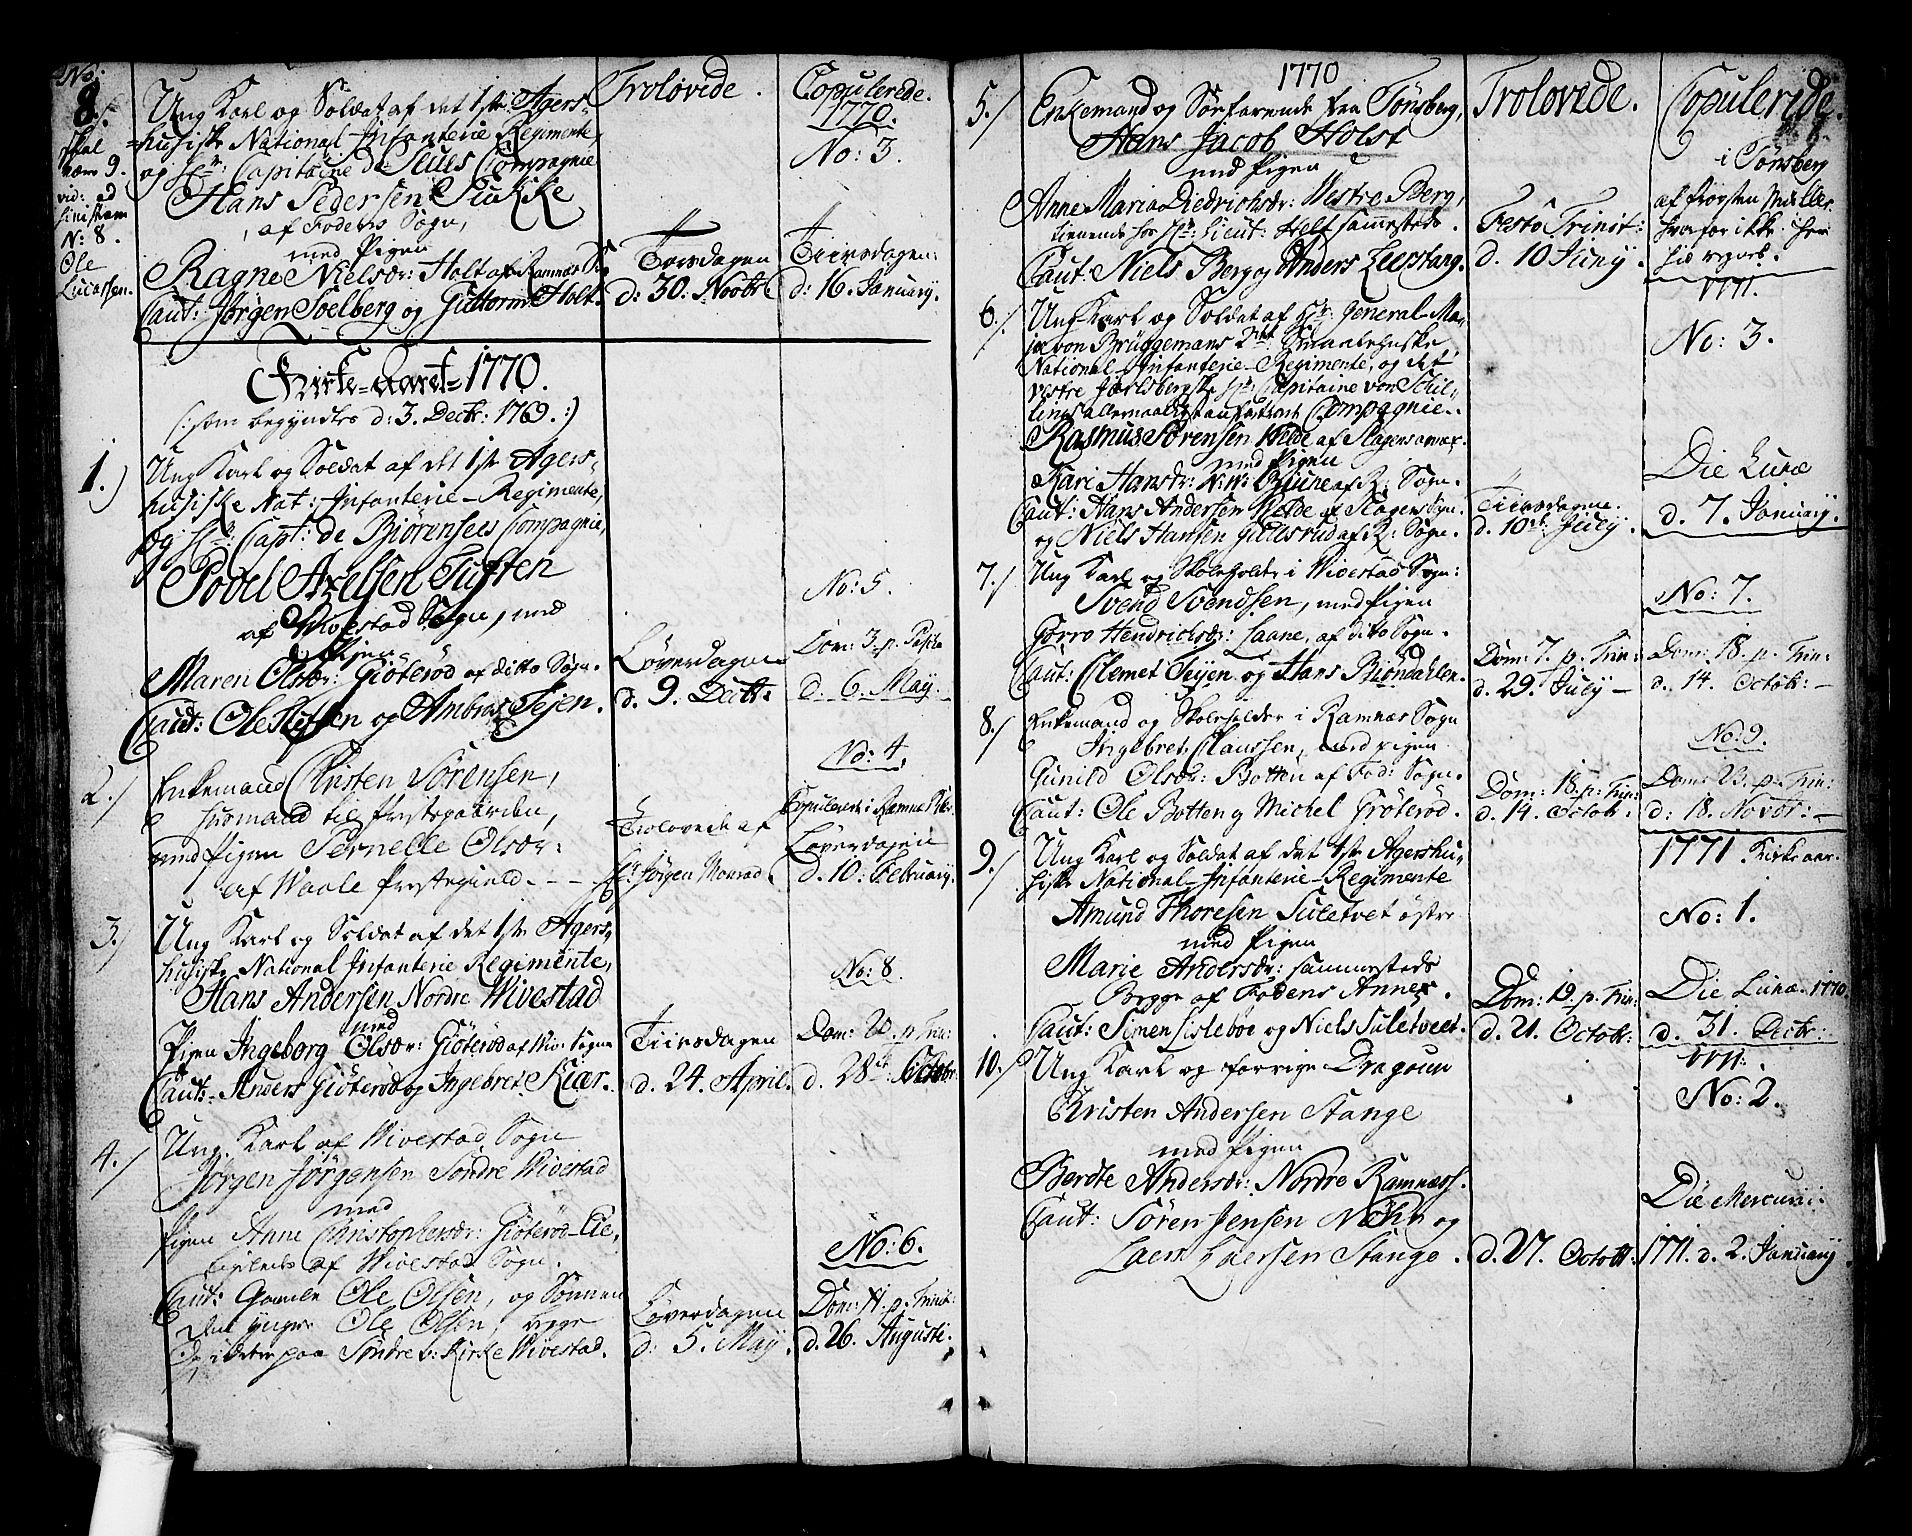 No:
8./
skal
være 9.
vid: ad
sinistram
N: 8.
Ole
Lucassen.
Troloviede.
Copulerede.
1770.
No: 3.
Ung Karl og Soldat af det 1ste Agers-
husiske National Infanterie Regimente,
og Hr: Capitaine de Seues Compagnie
Hans Pedersen Sukke
af Fodens Sogn,
med Pigen
Ragne Nielsdr: Holt af Ramnæs S:
Caut: Jörgen Soelberg og Guttorm Holt.
Torsdagen
d: 30. Novbr
Tiirsdagen:
d: 16. January.
Kirke-Aaret 1770.
(: som begyndte d: 3. Decbr: 1769. :)
1.)
Ung Karl og Soldat af det 1ste Agers-
husiske Nat: Infanterie-Regimente,
og Hr: Capt: de Bjørensees Compagnie,
Povel Axelsen Tuften
af Wivestad Sogn, med
Pigen
Maren Olsdr: Giöteröd af ditto Sogn.
Caut: Ole Steffen og Ambros Tejen.
Löverdagen
d. 9. Decbr.
No: 5.
Dom: 3. p. Pasch
d. 6. May.
2./
Enkemand Christen Sörensen,
huusmand til Præstegaarden,
med Pigen Pernelle Olsdr:
af Waale Præstegield.
Trolovede af
Hr. Jörgen Monrad
No: 4.
Copulerede i Ramnæs Kirke
Löverdagen
d. 10. February.
3.)
Ung Karl og Soldat af det 1ste Agers-
husiske National Infanterie Regimente,
Hans Andersen Nordre Wivestad
med
Pigen Ingeborg Olsdr: Giöteröd af Wiv: Sogn
Caut: Anders Giöteröd og Ingebret Kiær.
Tiirsdagen
d. 24. April.
No: 8.
Dom: 20. p. Trin:
d. 28de Octobr:
4./
Ung Karl af Wivestad Sogn
Jörgen Jörgensen Söndre Wivestad
med
Pigen Anne Christophersdr: Giöteröd-Eie,
ligeledes af Wivestad Sogn.
Caut: Gamle Ole Olsen, og Sönnen
den yngre Ole Olsen, begge
Opsiddere paa Söndre: Kirke Wivestad.
Löverdagen
d: 5. May.
No: 6.
Dom: 11. p. Trinit:
d. 26. Augusti.
1770
Troloviede.
Copulerede.
5./
Enkemand og Söefarende fra Tönsberg,
Hans Jacob Holst
med Pigen
Anne Maria Diedrichsdr: Westre Berg,
tienende hos Hr: Lieut: Helt sammesteds.
Caut: Niels Berg og Anders Leerstang.
Festo Trinit:
d. 10 Juny.
i Tönsberg
af Provsten Müller
hvorfor ikke her
1771.
6./
Ung Karl og Soldat af Hr: General-Ma-
jor von Brüggemans 2det Smaalehnske
National-Infanterie-Regimente, og det
vestre Jarlsbergske Hr: Capitaine von Schil-
lings allernaadigst anfortroet Compagnie.
Rasmus Sörensen Welde af Slagens annex.
med Pigen
Kari Hansdr: N: W: Bruuse af R: Sogn.
Caut: Hans Andersen Welde af Slagens Sogn.
og Niels Hansen Gullsrud af R: Sogn.
Tiirsdagene
d. 10de July.
No: 3.
Die Lunæ
d. 7. January.
7./
Ung Karl og Skoleholder i Wivestad Sogn:
Svend Svendsen, med Pigen
Gorro Hendrichsdr: Laane, af ditto Sogn.
Caut: Clemet Teijen og Hans Biöndahlen.
Dom: 7. p. Trin:
d. 29. July
No: 7.
Dom: 18. p. Trin:
d. 14. Octobr:
8./
Enkemand og Skoleholder i Ramnæs Sogn
Ingebret Claussen, med pigen
Gunild Olsdr: Botten af Fod: Sogn.
Caut: Ole Botten og Michel Gröteröd.
Dom: 18. p: Trin:
d. 14. Octobr:
No: 9.
Dom: 23. p. Trin:
d: 18. Novbr:
1771 Kirke aar.
9./
Ung Karl og Soldat af det 1ste Agershu-
siske National-Infanterie-Regimente
Amund Thoresen Suletvet östre
med Pigen
Marie Andersdr: sammesteds
Begge af Fodens Annex.
Caut: Simen Lisleboe og Niels Suletveet.
Dom: 19. p. Trin:
d. 21. Octobr:
No: 1.
Die Lunæ. 1770.
d. 31. Decbr:
1771.
10./
Ung Karl og forrige Dragoun
Christen Andersen Stange
med Pigen
Berdte Andersdr: Nordre Ramnæss.
Caut: Sören Jensen Nöhr og
Laers Laersen Stange.
d. 27. Octobr:
No: 2.
Die Mercurii.
1771. d. 2. January